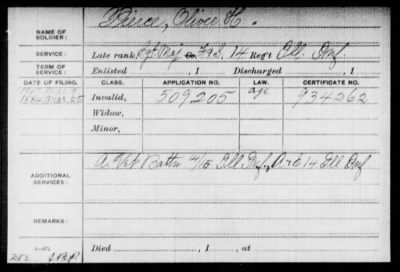 Pierce, Oliver H.
NAME OF SOLDIER:
SERVICE: Late rank, Sgt Maj Co. F&S, 14 Reg't Ill. Inf.
TERM OF SERVICE: Enlisted , 1 Discharged , 1
DATE OF FILING. CLASS. APPLICATION NO. LAW. CERTIFICATE NO.
1884 Mar. 25 Invalid, 509205 age 934262
Widow,
Minor,
ADDITIONAL SERVICES: 4/15 Ill Inf, 14 Ill Inf
REMARKS:
Died , 1 , at